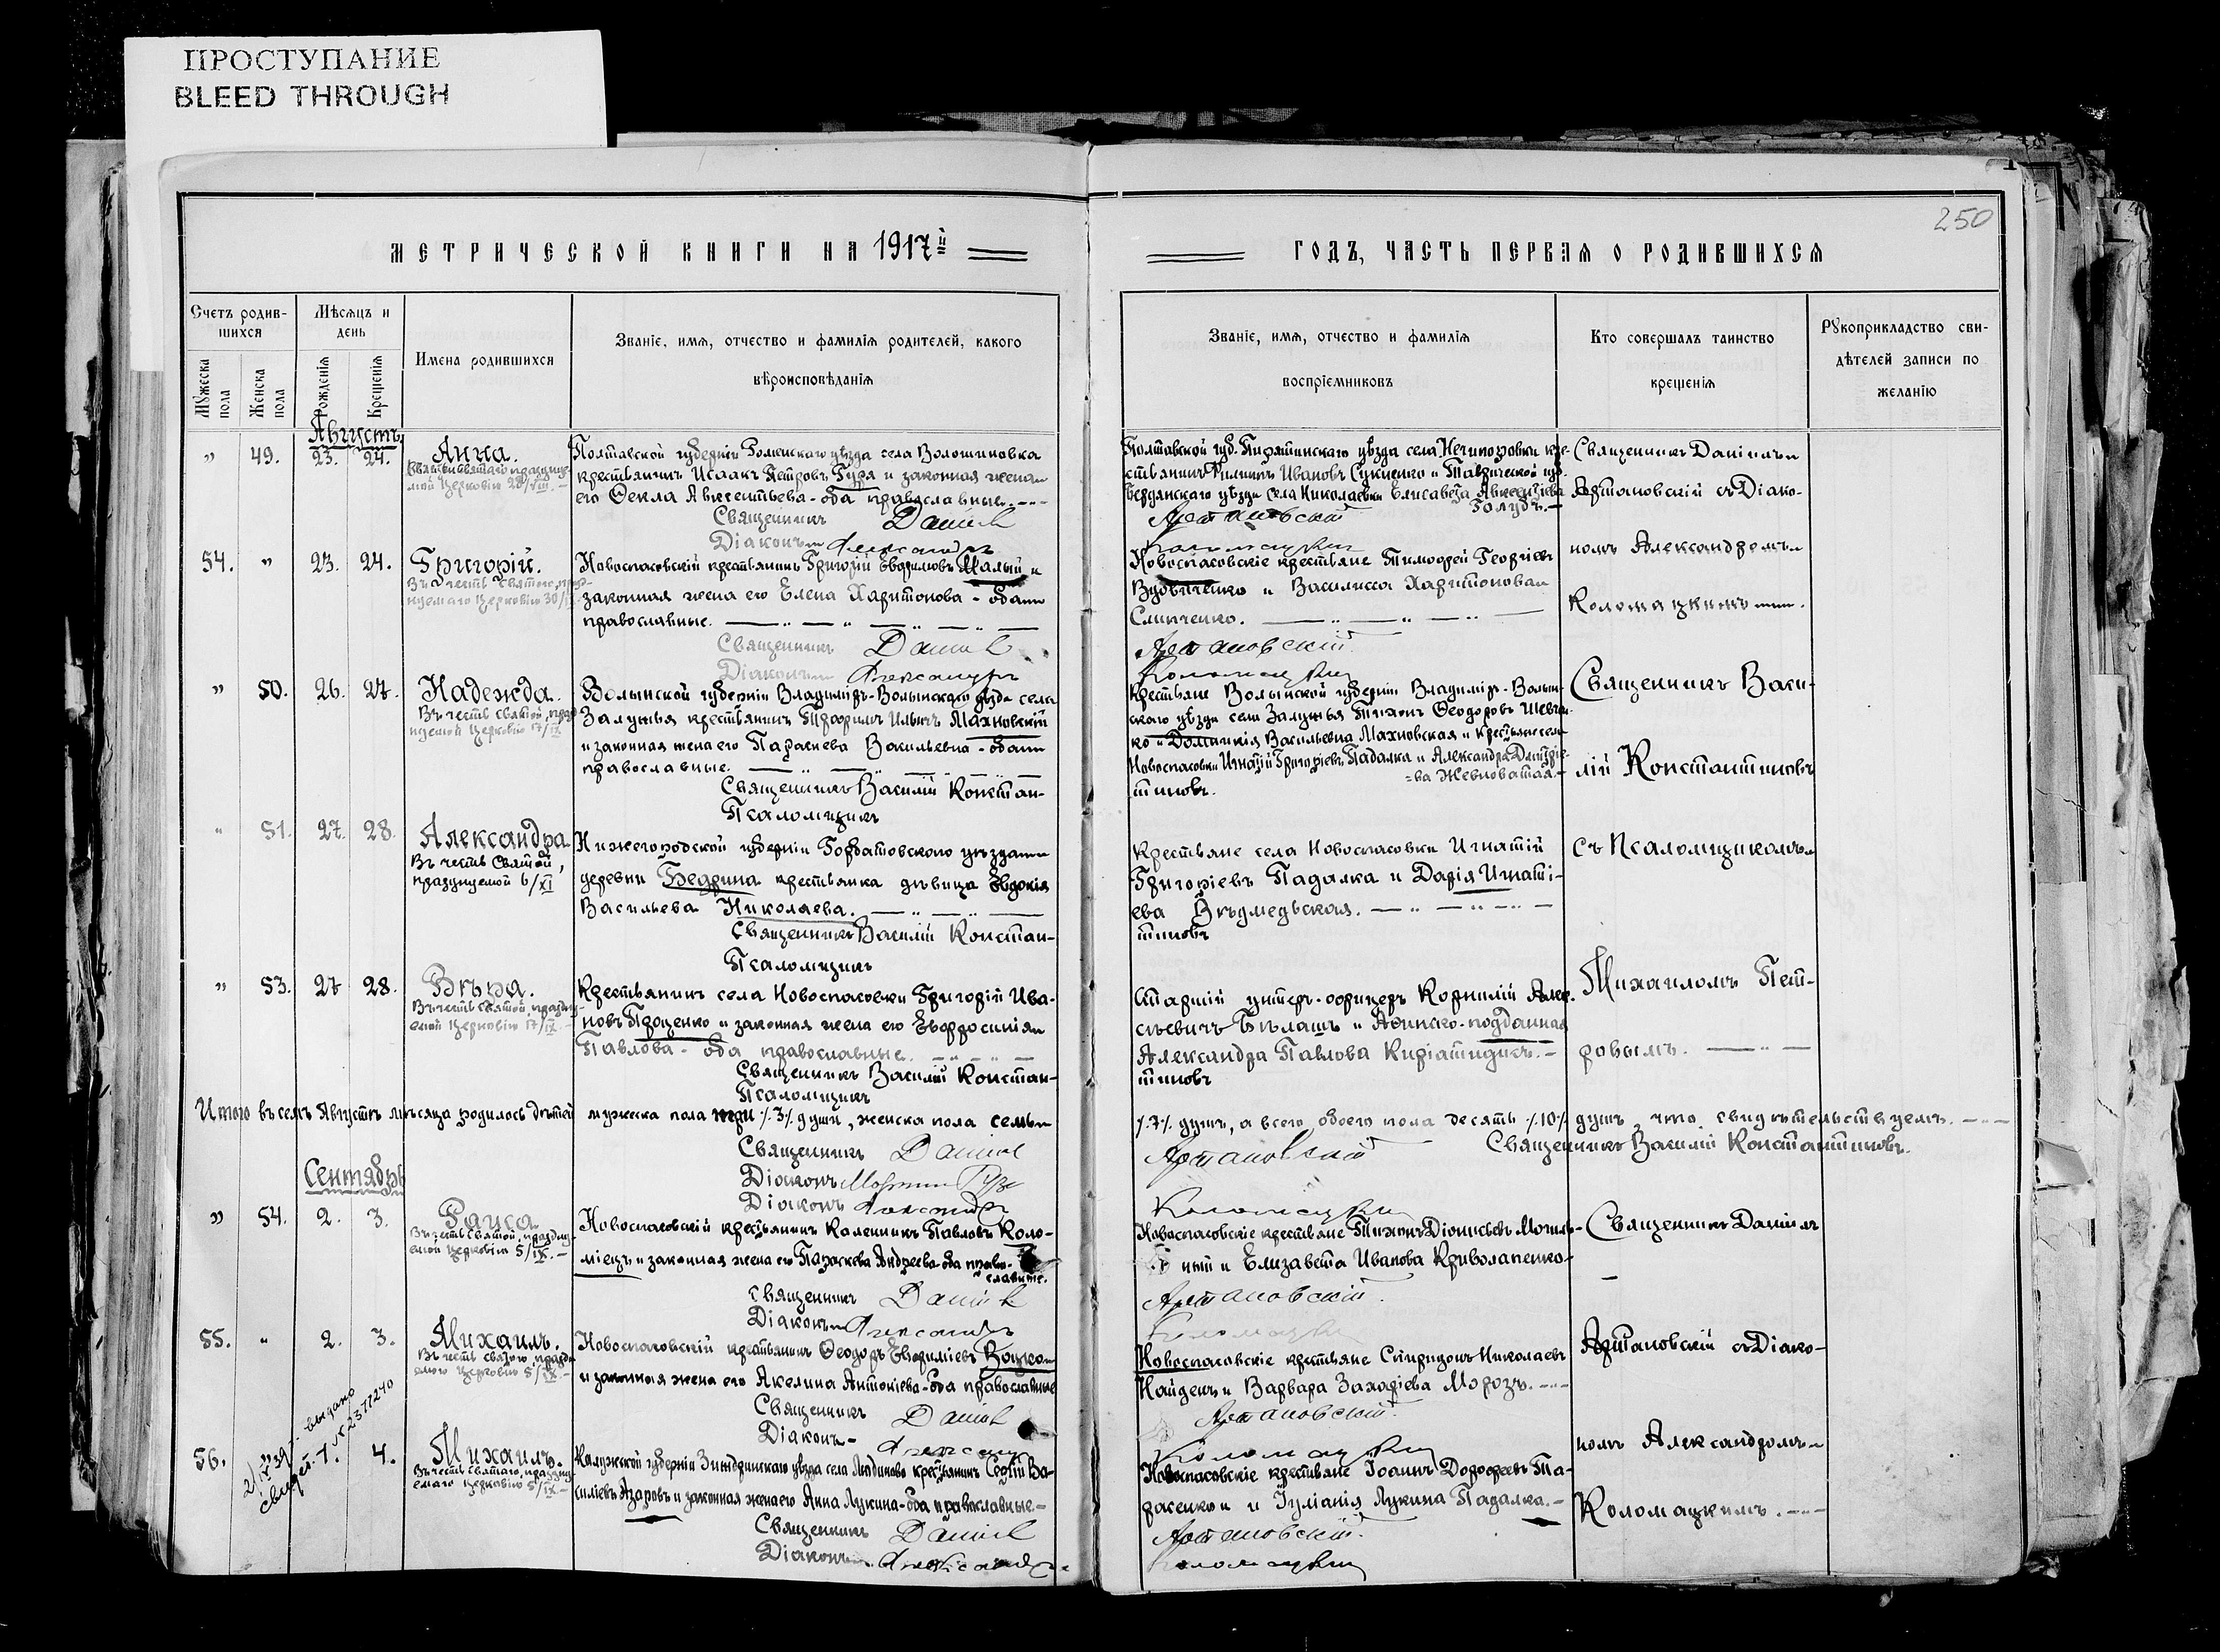 ПРОСТУПАНИЕ
BLEED THROUGH
250
МЕТРИЧЕСКОЙ КНИГИ НА 1917й
ГОДЪ, ЧАСТЬ ПЕРВАЯ О РОДИВШИХСЯ
Счетъ родив-
шихся
Мужеска пола
Женска пола
Мѣсяцъ и
день
Рожденія
Крещенія
Имена родившихся
Званіе, имя, отчество и фамилія родителей, какого
вѣроисповѣданія
Званіе, имя, отчество и фамилія
воспріемниковъ
Кто совершалъ таинство
крещенія
Рукоприкладство сви-
дѣтелей записи по
желанію
Августъ
„ 49. 23. 24. Анна.
Полтавской губерніи Роменскаго уѣзда села Волошиновка
крестьянинъ Исаакъ Петровъ Гуря и законная жена
его Ѳекла Авксентьева - оба православные.
Священникъ Даніилъ
Діаконъ Александръ
Полтавской губ. Пирятинскаго уѣзда села Нечипоровки кре-
стьянинъ Филиппъ Ивановъ Сукценко и Таврической губ.
Бердянскаго уѣзда села Николаевки Елисавета Авксентіева
Голубъ.
Артановскій
Коломацкій
Священникъ Даніилъ
Артановскій съ Діако-
номъ Александромъ
Коломацкимъ
54. „ 23. 24. Григорій.
Въ честь святого, празд-
нуемаго Церковію 30/
Новоспасовскій крестьянинъ Григорій Евфимовъ Малый и
законная жена его Елена Харитонова - оба
православные.
Священникъ Даніилъ
Діаконъ Александръ
Новоспасовскіе крестьяне Тимофей Георгіевъ
Вдовиченко и Василисса Харитонова
Слипченко.
Артановскій
Коломацкій
„ 50. 26. 27. Надежда.
Въ честь святой, празд-
нуемой Церковію 17/IX
Волынской губерніи Владиміръ-Волынскаго уѣзда села
Залужья крестьянинъ Трофимъ Ильичъ Махновскій
и законная жена его Параскева Васильевна - оба
православные.
Священникъ Василій Констан-
Псаломщикъ
Крестьяне Волынской губерніи Владиміръ-Волын-
скаго уѣзда села Залужья Тихонъ Ѳеодоровъ Шевчен-
ко и Домникія Васильевна Махновская и крестьяне села
Новоспасовки Игнатій Григоріевъ Падалка и Александра Дмитріе-
ва Жевноватая.
тиновъ.
Священникъ Васи-
лій Константиновъ
съ Псаломщикомъ
Михаиломъ Пет-
ровымъ.
„ 51. 27. 28. Александра.
Въ честь Святой,
празднуемой 6/XI
Нижегородской губерніи Горбатовскаго уѣзда
деревни Бедрина крестьянка дѣвица Евдокія
Васильева Николаева.
Священникъ Василій Констан-
Псаломщикъ
Крестьяне села Новоспасовки Игнатій
Григоріевъ Падалка и Дарія Игнаті-
ева Вѣдмедьская.
тиновъ
„ 53. 27. 28. Вѣра.
Въ честь святой, праздну-
емой Церковію 17/IX.
Крестьянинъ села Новоспасовки Григорій Ива-
новъ Проценко и законная жена его Евфросинія
Павлова - оба православные.
Священникъ Василій Констан-
Псаломщикъ
Старшій унтеръ-офицеръ Корнилій Алек-
сѣевичъ Бѣлашъ и Афинско-подданная
Александра Павлова Киріатидисъ.
тиновъ
Итого въ семъ Августѣ мѣсяцѣ родилось дѣтей мужеска пола три /.3/. души, женска пола семь
/.7/. душъ, а всего обоего пола десять /.10/. душъ, что свидѣтельствуемъ.
Священникъ Даніилъ Артановскій
Священникъ Василій Константиновъ.
Діаконъ
Діаконъ Александръ Коломацкій
Сентябрь
„ 54. 2. 3. Раиса.
Въ честь святой, праздну-
емой Церковію 5/IX.
Новоспасовскій крестьянинъ Каленикъ Павловъ Коло-
міецъ и законная жена его Параскева Андреева - оба право-
славные.
Священникъ Даніилъ
Діаконъ Александръ
Новоспасовскіе крестьяне Тихонъ Діонисіевъ Могиль-
ный и Елизавета Иванова Криволапенко
Артановскій.
Коломацкій
Священникъ Даніилъ
Артановскій съ Діако-
номъ Александромъ
Коломацкимъ.
55. „ 2. 3. Михаилъ.
Въ честь святого, праздну-
емаго Церковію 5/IX.
Новоспасовскій крестьянинъ Ѳеодоръ Евфиміевъ Воцко
и законная жена его Акелина Антоніева - оба православные
Священникъ Даніилъ
Діаконъ Александръ
Новоспасовскіе крестьяне Спиридонъ Николаевъ
Найденъ и Варвара Захаріева Морозъ.
Артановскій.
Коломацкій
выдано
свидет. 1. 4.
56. Михаилъ.
Въ честь святаго, праздну-
емаго Церковію 5/IX
Калужской губерніи Жиздринскаго уѣзда села Людиново крестьянинъ Сергій Ва-
силіевъ Азаровъ и законная жена его Анна Лукина - оба православные
Священникъ Даніилъ
Діаконъ Александръ
Новоспасовскіе крестьяне Іоаннъ Дорофеевъ Та-
расенко и Іуліанія Лукина Падалка.
Артановскій.
Коломацкій